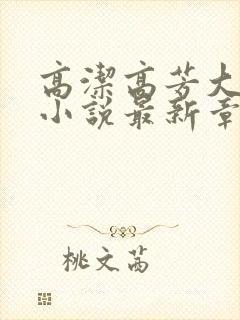 高潔高芳大
小說最新章
桃文茜